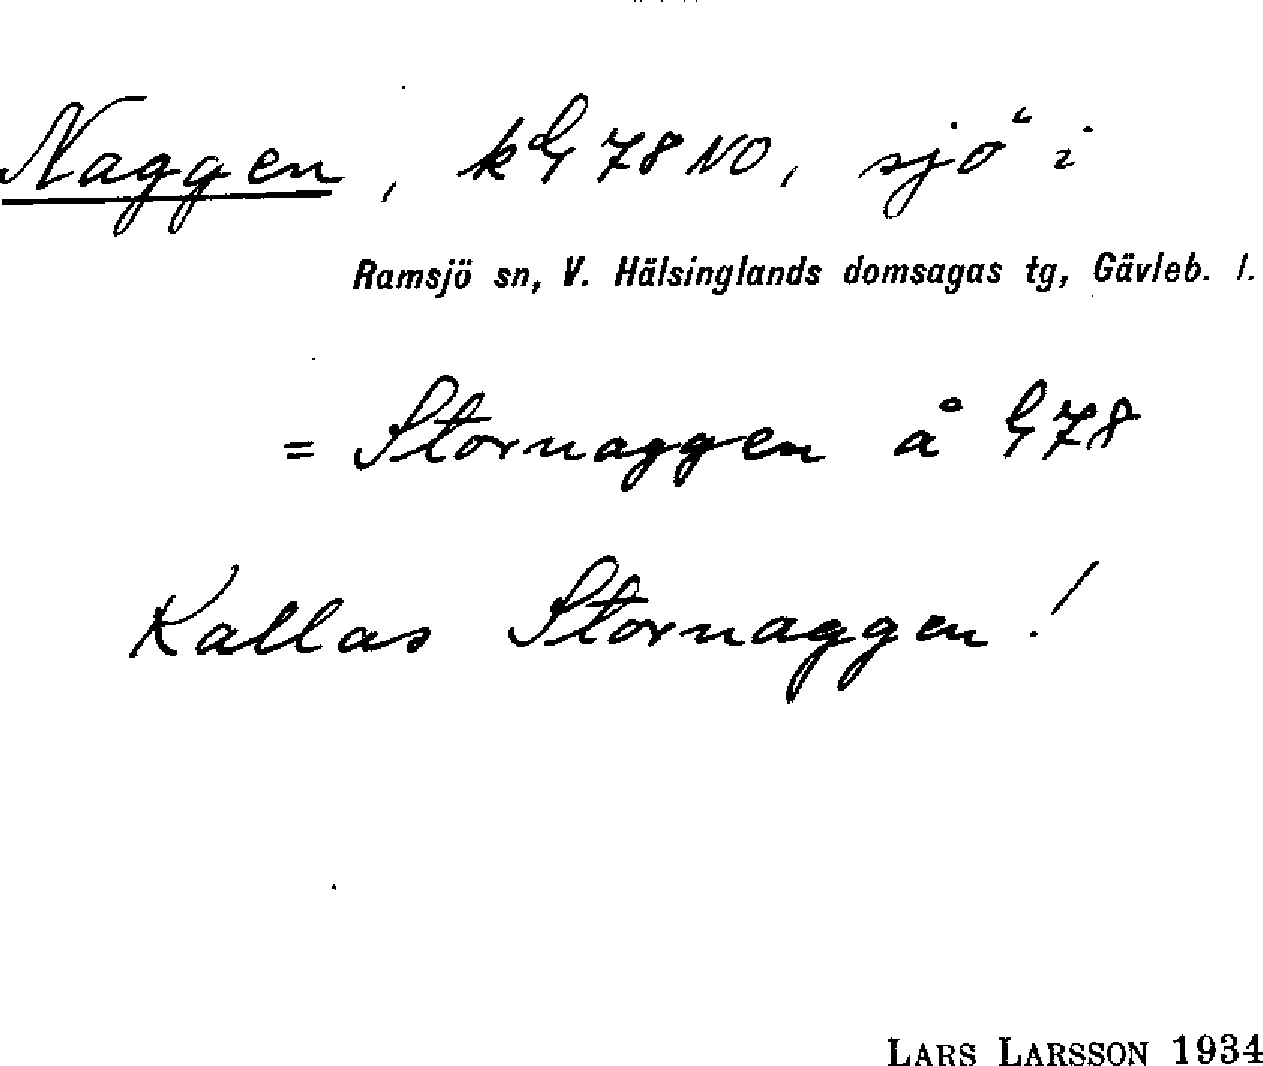 Naggen, kG 78 NO, sjö i
Ramsjö sn, V. Hälsinglands domsagas tg, Gävleb. l.
= Stornaggen å G 78
Kallas Stornaggen!
LARS LARSSON 1934